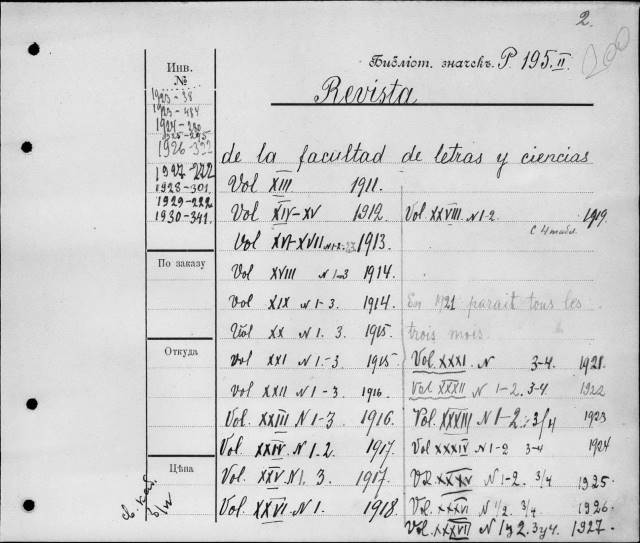 2.
200
Библіот. значекъ. P 195.II
Revista
Инв.
№
1923-38
1923-484
1924-280
1925-295
1926-332
1927-222
1928-301.
1929-222
1930-341.
По заказу
Откуда
Цѣна
de la facultad de letras y ciencias
Vol XIII 1911.
Vol XIV-XV 1912
Vol XVI-XVII N 1-2 1913.
Vol XVIII N 1-3 1914.
Vol XIX N 1-3. 1914.
Vol XX N 1. 3. 1915.
Vol XXI N 1.-3 1915
Vol XXII N 1-3. 1916.
Vol. XXIII N 1-3 1916.
Vol. XXIV. N 1.-2. 1917.
Vol. XXV. N 1. 3. 1917.
Vol. XXVI N 1. 1918.
Vol. XXVIII N 1-2. 1919.
с 4 табл.
En 1921 parait tous les
trois mois.
Vol. XXXI. N 3-4. 1921.
Vol. XXXII N 1-2. 3-4 1922
Vol. XXXIII N 1-2. 3/4 1923
Vol XXXIV N 1-2 3-4 1924
Vol. XXXV N 1-2. 3/4 1925
Vol. XXXVI N 1/2 3/4. 1926.
Vol. XXXVII N 1 y 2. 3 y 4. 1927.